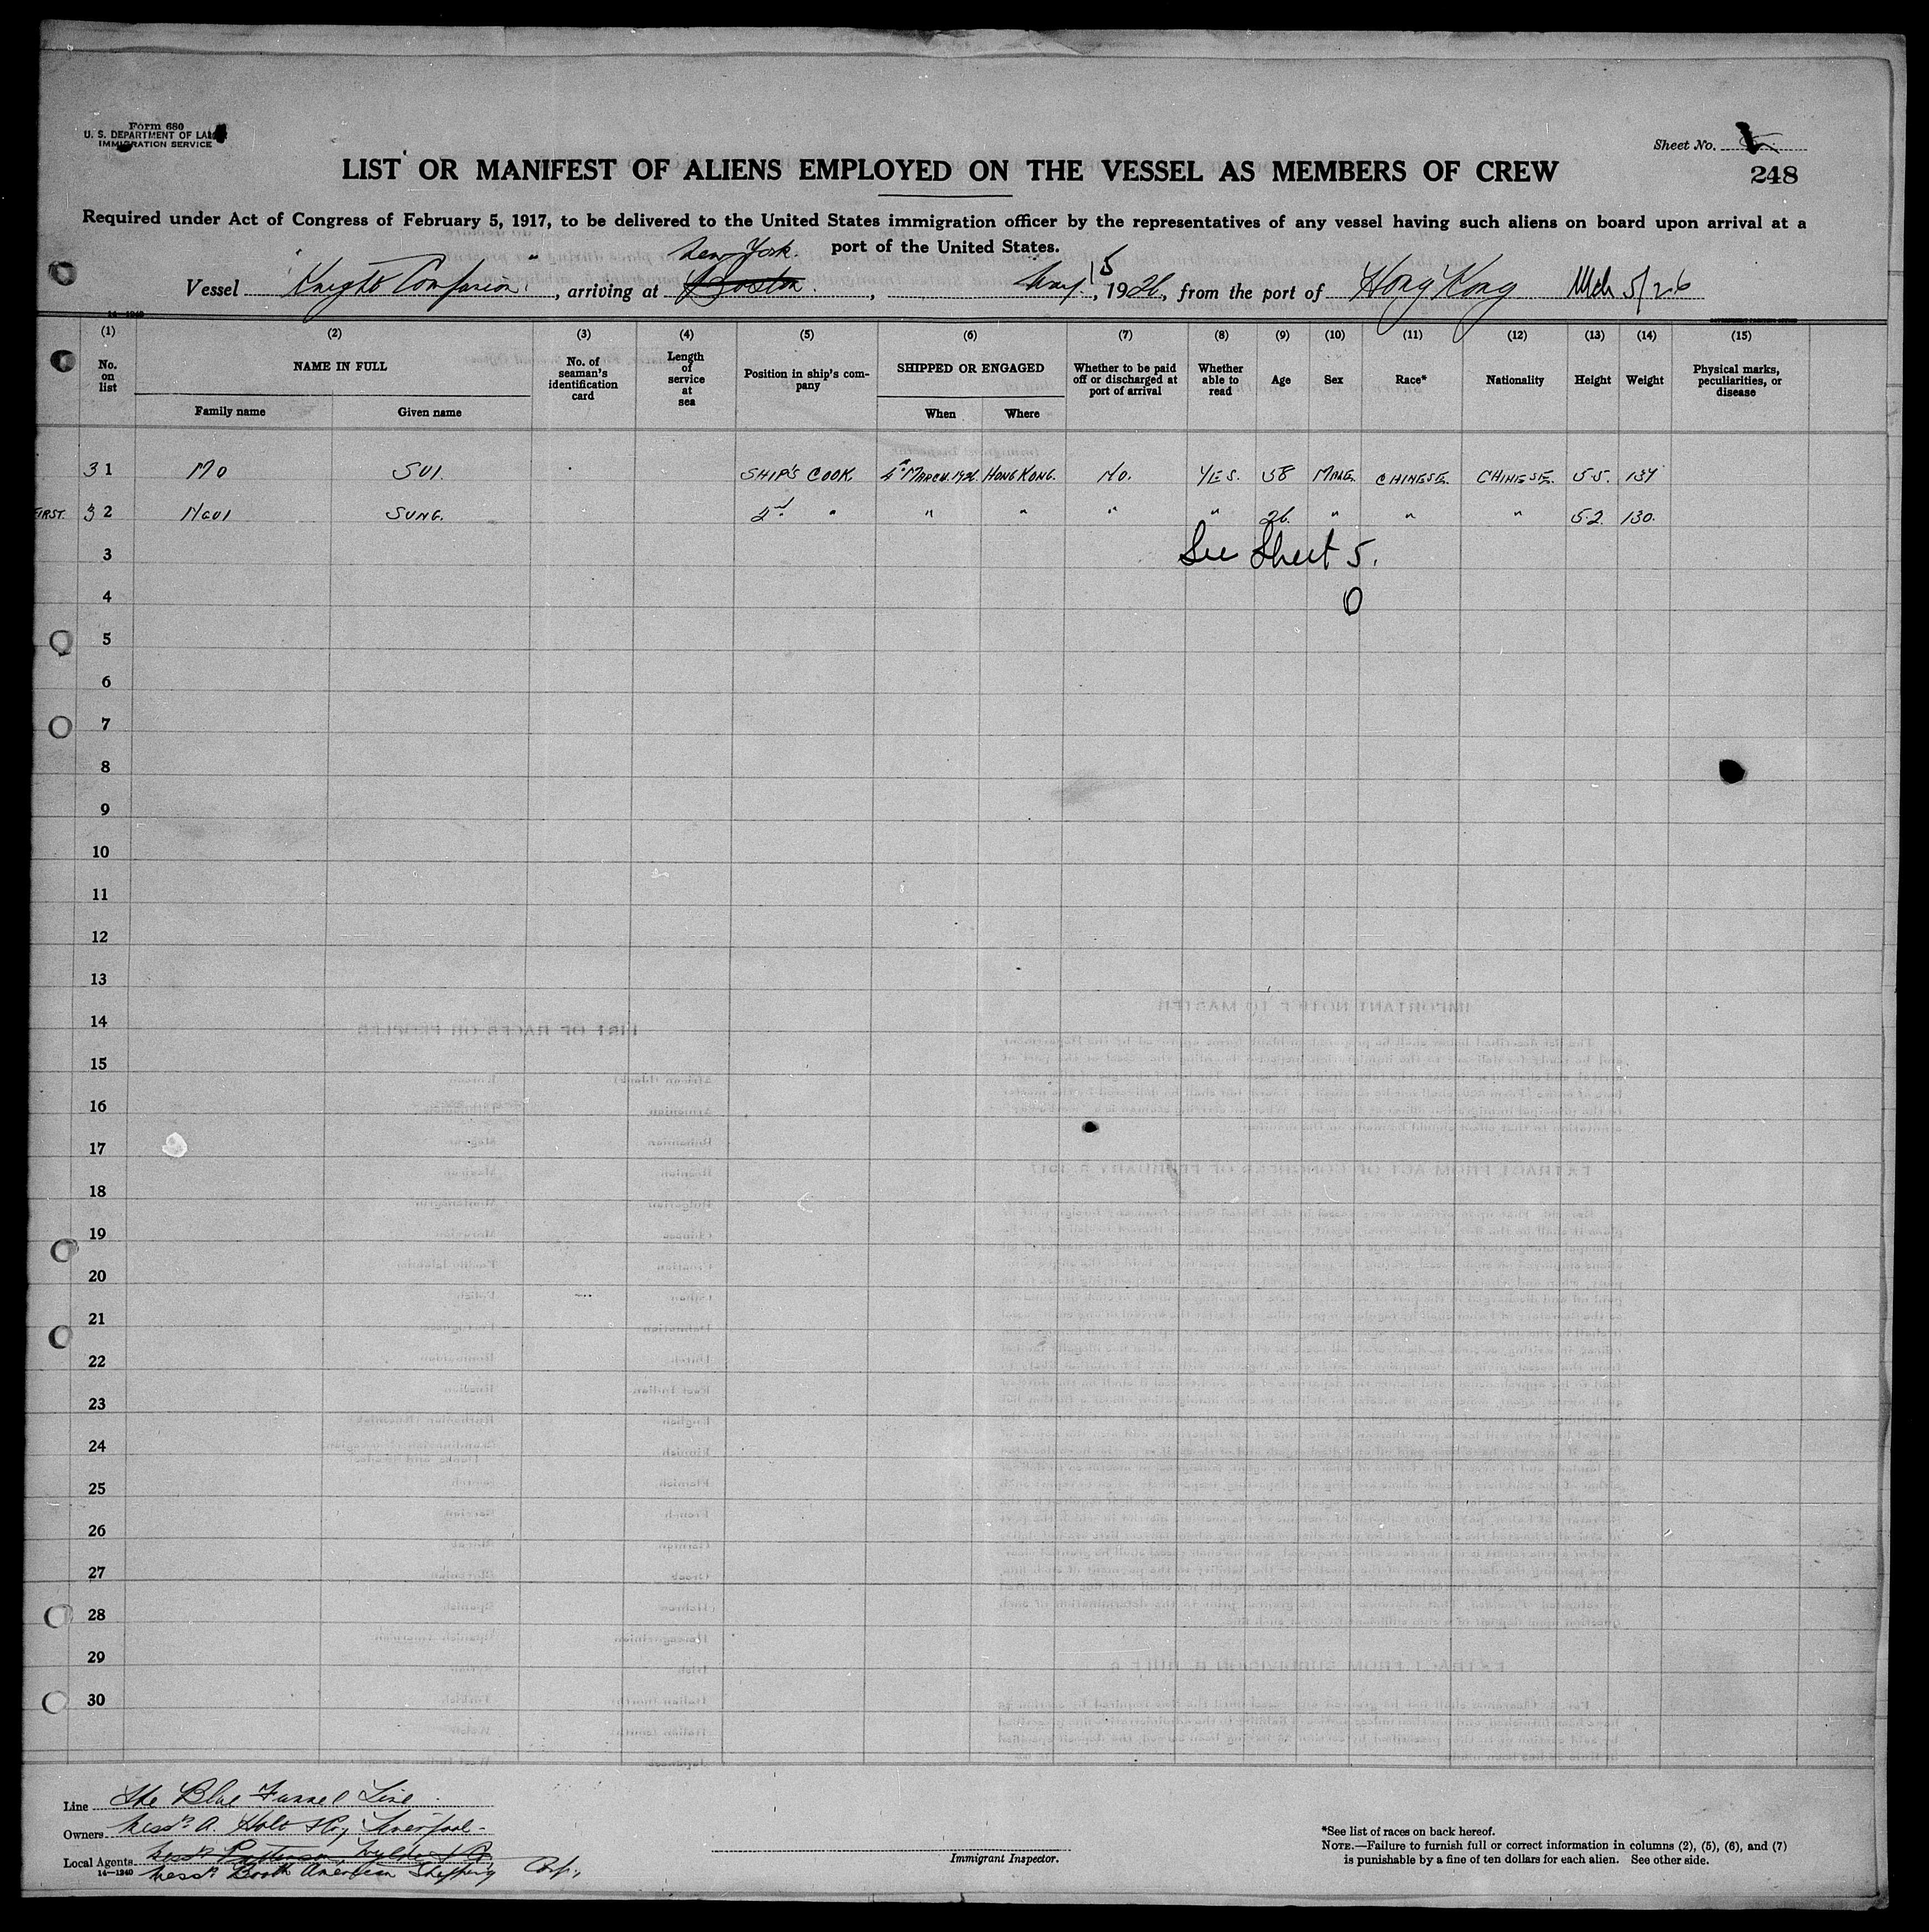 Form 680
U. S. DEPARTMENT OF LABOR
IMMIGRATION SERVICE
Sheet No.
248
LIST OR MANIFEST OF ALIENS EMPLOYED ON THE VESSEL AS MEMBERS OF CREW
Required under Act of Congress of February 5, 1917, to be delivered to the United States immigration officer by the representatives of any vessel having such aliens on board upon arrival at a
port of the United States.
New York.
Vessel "Knight Companion", arriving at Boston, May 15, 1926, from the port of Hong Kong Mch 5/26
14—1240
(1) (2) (3) (4) (5) (6) (7) (8) (9) (10) (11) (12) (13) (14) (15)
No. on list NAME IN FULL Family name Given name No. of seaman's identification card Length of service at sea Position in ship's company SHIPPED OR ENGAGED When Where Whether to be paid off or discharged at port of arrival Whether able to read Age Sex Race* Nationality Height Weight Physical marks, peculiarities, or disease
31 MO SUI. SHIP'S COOK 4th MARCH.1926. HONG KONG. NO. YES. 38 MALE. CHINESE. CHINESE. 5.5. 134
FIRST. 32 NGUI SUNG. 2nd " " " " " 26. " " " 5.2. 130.
3 See Sheet 5.
4 0
5
6
7
8
9
10
11
12
13
14
15
16
17
18
19
20
21
22
23
24
25
26
27
28
29
30
Line The Blue Funnel Line
Owners Messrs A. Holt & Co, Liverpool-
Local Agents Messrs Patterson, Wylde & Co
14—1240 Messrs Booth American Shipping Corp.,
Immigrant Inspector.
*See list of races on back hereof.
NOTE.—Failure to furnish full or correct information in columns (2), (5), (6), and (7)
is punishable by a fine of ten dollars for each alien. See other side.